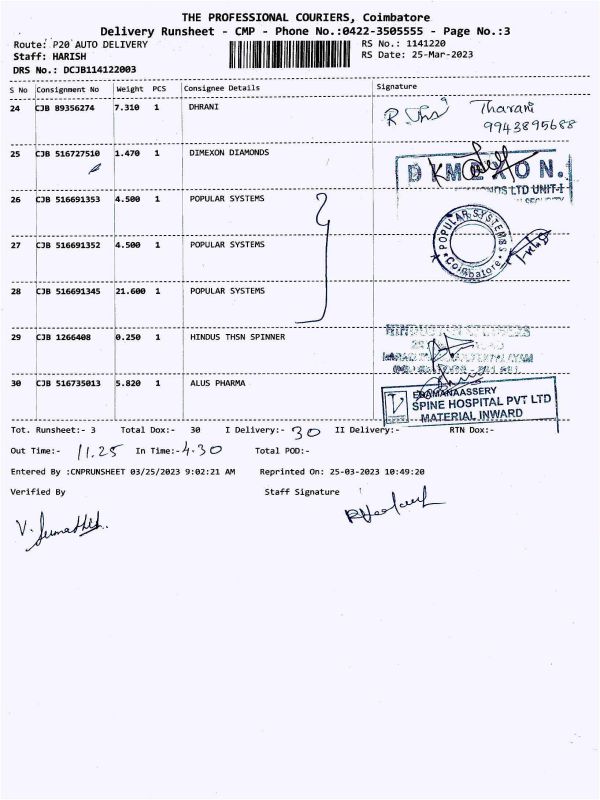 THE PROFESSIONAL COURIERS, Coimbatore
Delivery Runsheet - CMP - Phone No.:0422-3505555 - Page No.:3
Route: P20 AUTO DELIVERY RS No.: 1141220
Staff: HARISH RS Date: 25-Mar-2023
DRS No.: DCJB114122003
S No Consignment No Weight PCS Consignee Details Signature
24 CJB 89356274 7.310 1 DHRANI
Tharani
9943895688
25 CJB 516727510 1.470 1 DIMEXON DIAMONDS
LTD UNIT-I
26 CJB 516691353 4.500 1 POPULAR SYSTEMS
POPULAR SYSTEMS
Coimbatore
27 CJB 516691352 4.500 1 POPULAR SYSTEMS
28 CJB 516691345 21.600 1 POPULAR SYSTEMS
29 CJB 1266408 0.250 1 HINDUS THSN SPINNER
30 CJB 516735013 5.820 1 ALUS PHARMA
SPINE HOSPITAL PVT LTD
MATERIAL INWARD
Tot. Runsheet:- 3 Total Dox:- 30 I Delivery:- 30 II Delivery:- RTN Dox:-
Out Time:- 11.25 In Time:- 4.30 Total POD:-
Entered By :CNPRUNSHEET 03/25/2023 9:02:21 AM Reprinted On: 25-03-2023 10:49:20
Verified By Staff Signature